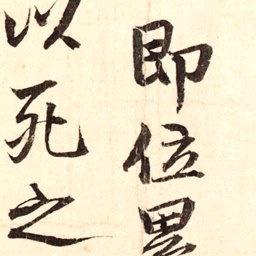 即位累
以死之